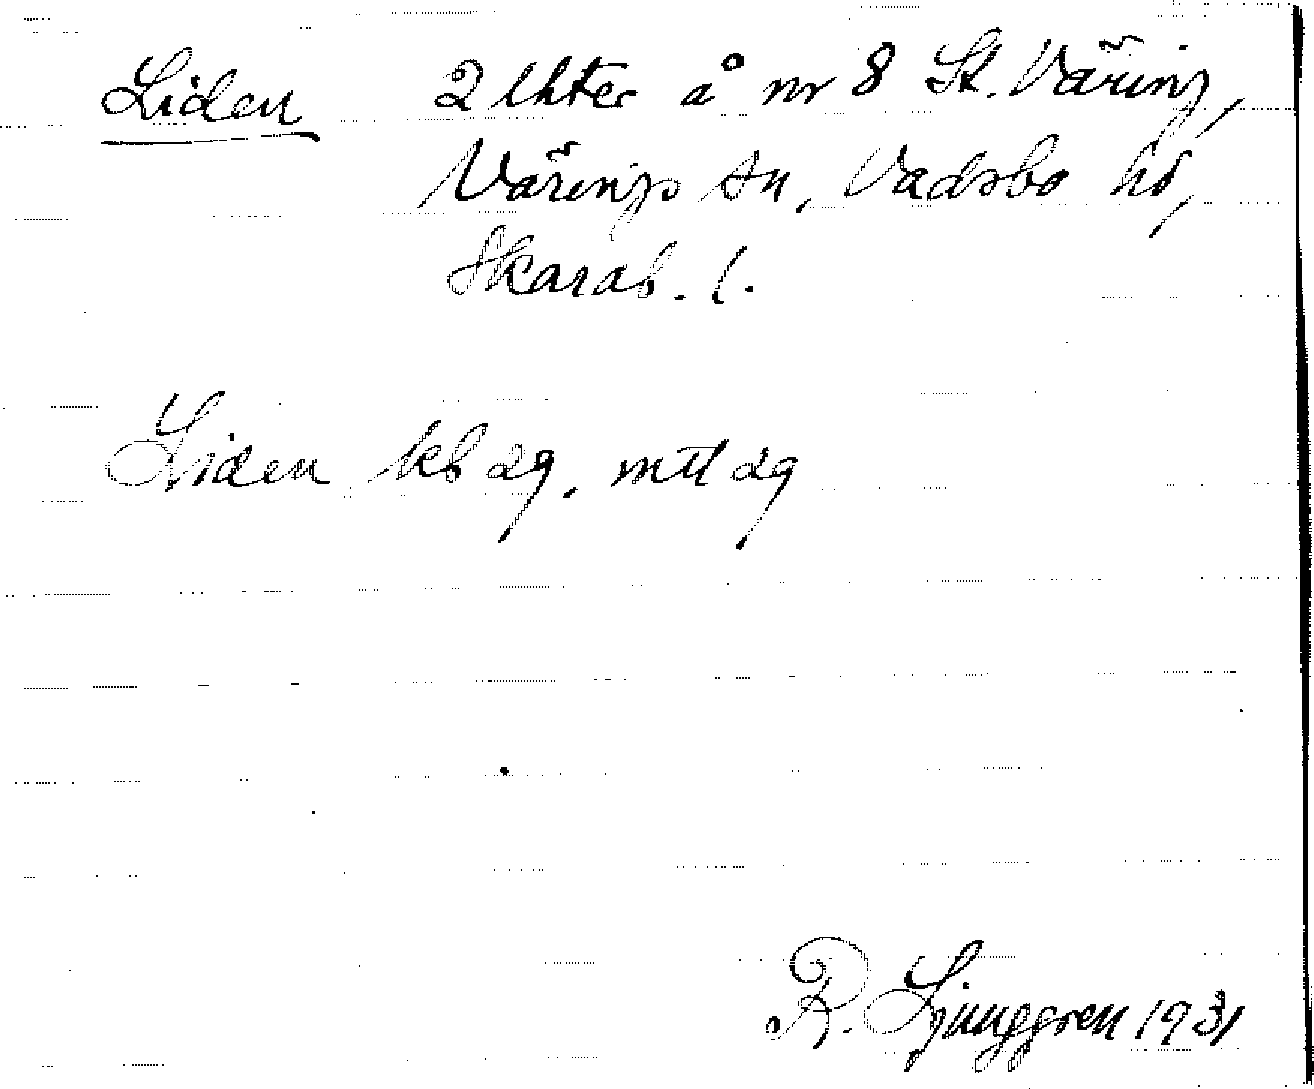 Liden 2 lhter å nr 8 St. Väring,
Värings sn, Vadsbo hd,
Skarab. l.
Liden kb 29, mtl 29
R. Ljunggren 1931